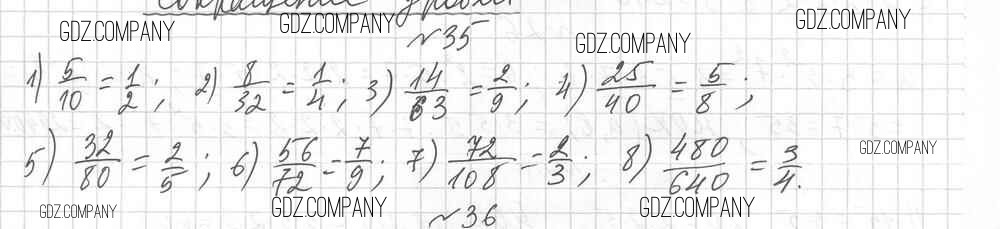 Сокращение дробей
GDZ.COMPANY GDZ.COMPANY GDZ.COMPANY
№35
GDZ.COMPANY
1) 5/10 = 1/2; 2) 8/32 = 1/4; 3) 14/63 = 2/9; 4) 25/40 = 5/8;
5) 32/80 = 2/5; 6) 56/72 = 7/9; 7) 72/108 = 2/3; 8) 480/640 = 3/4.
GDZ.COMPANY
GDZ.COMPANY GDZ.COMPANY GDZ.COMPANY
№36